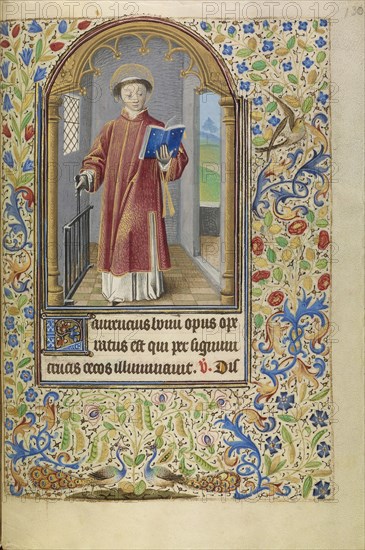 130
Laurencius bonum opus ope
ratus est qui per signum
crucis cecos illuminavit. V. Dis
PHOTO12